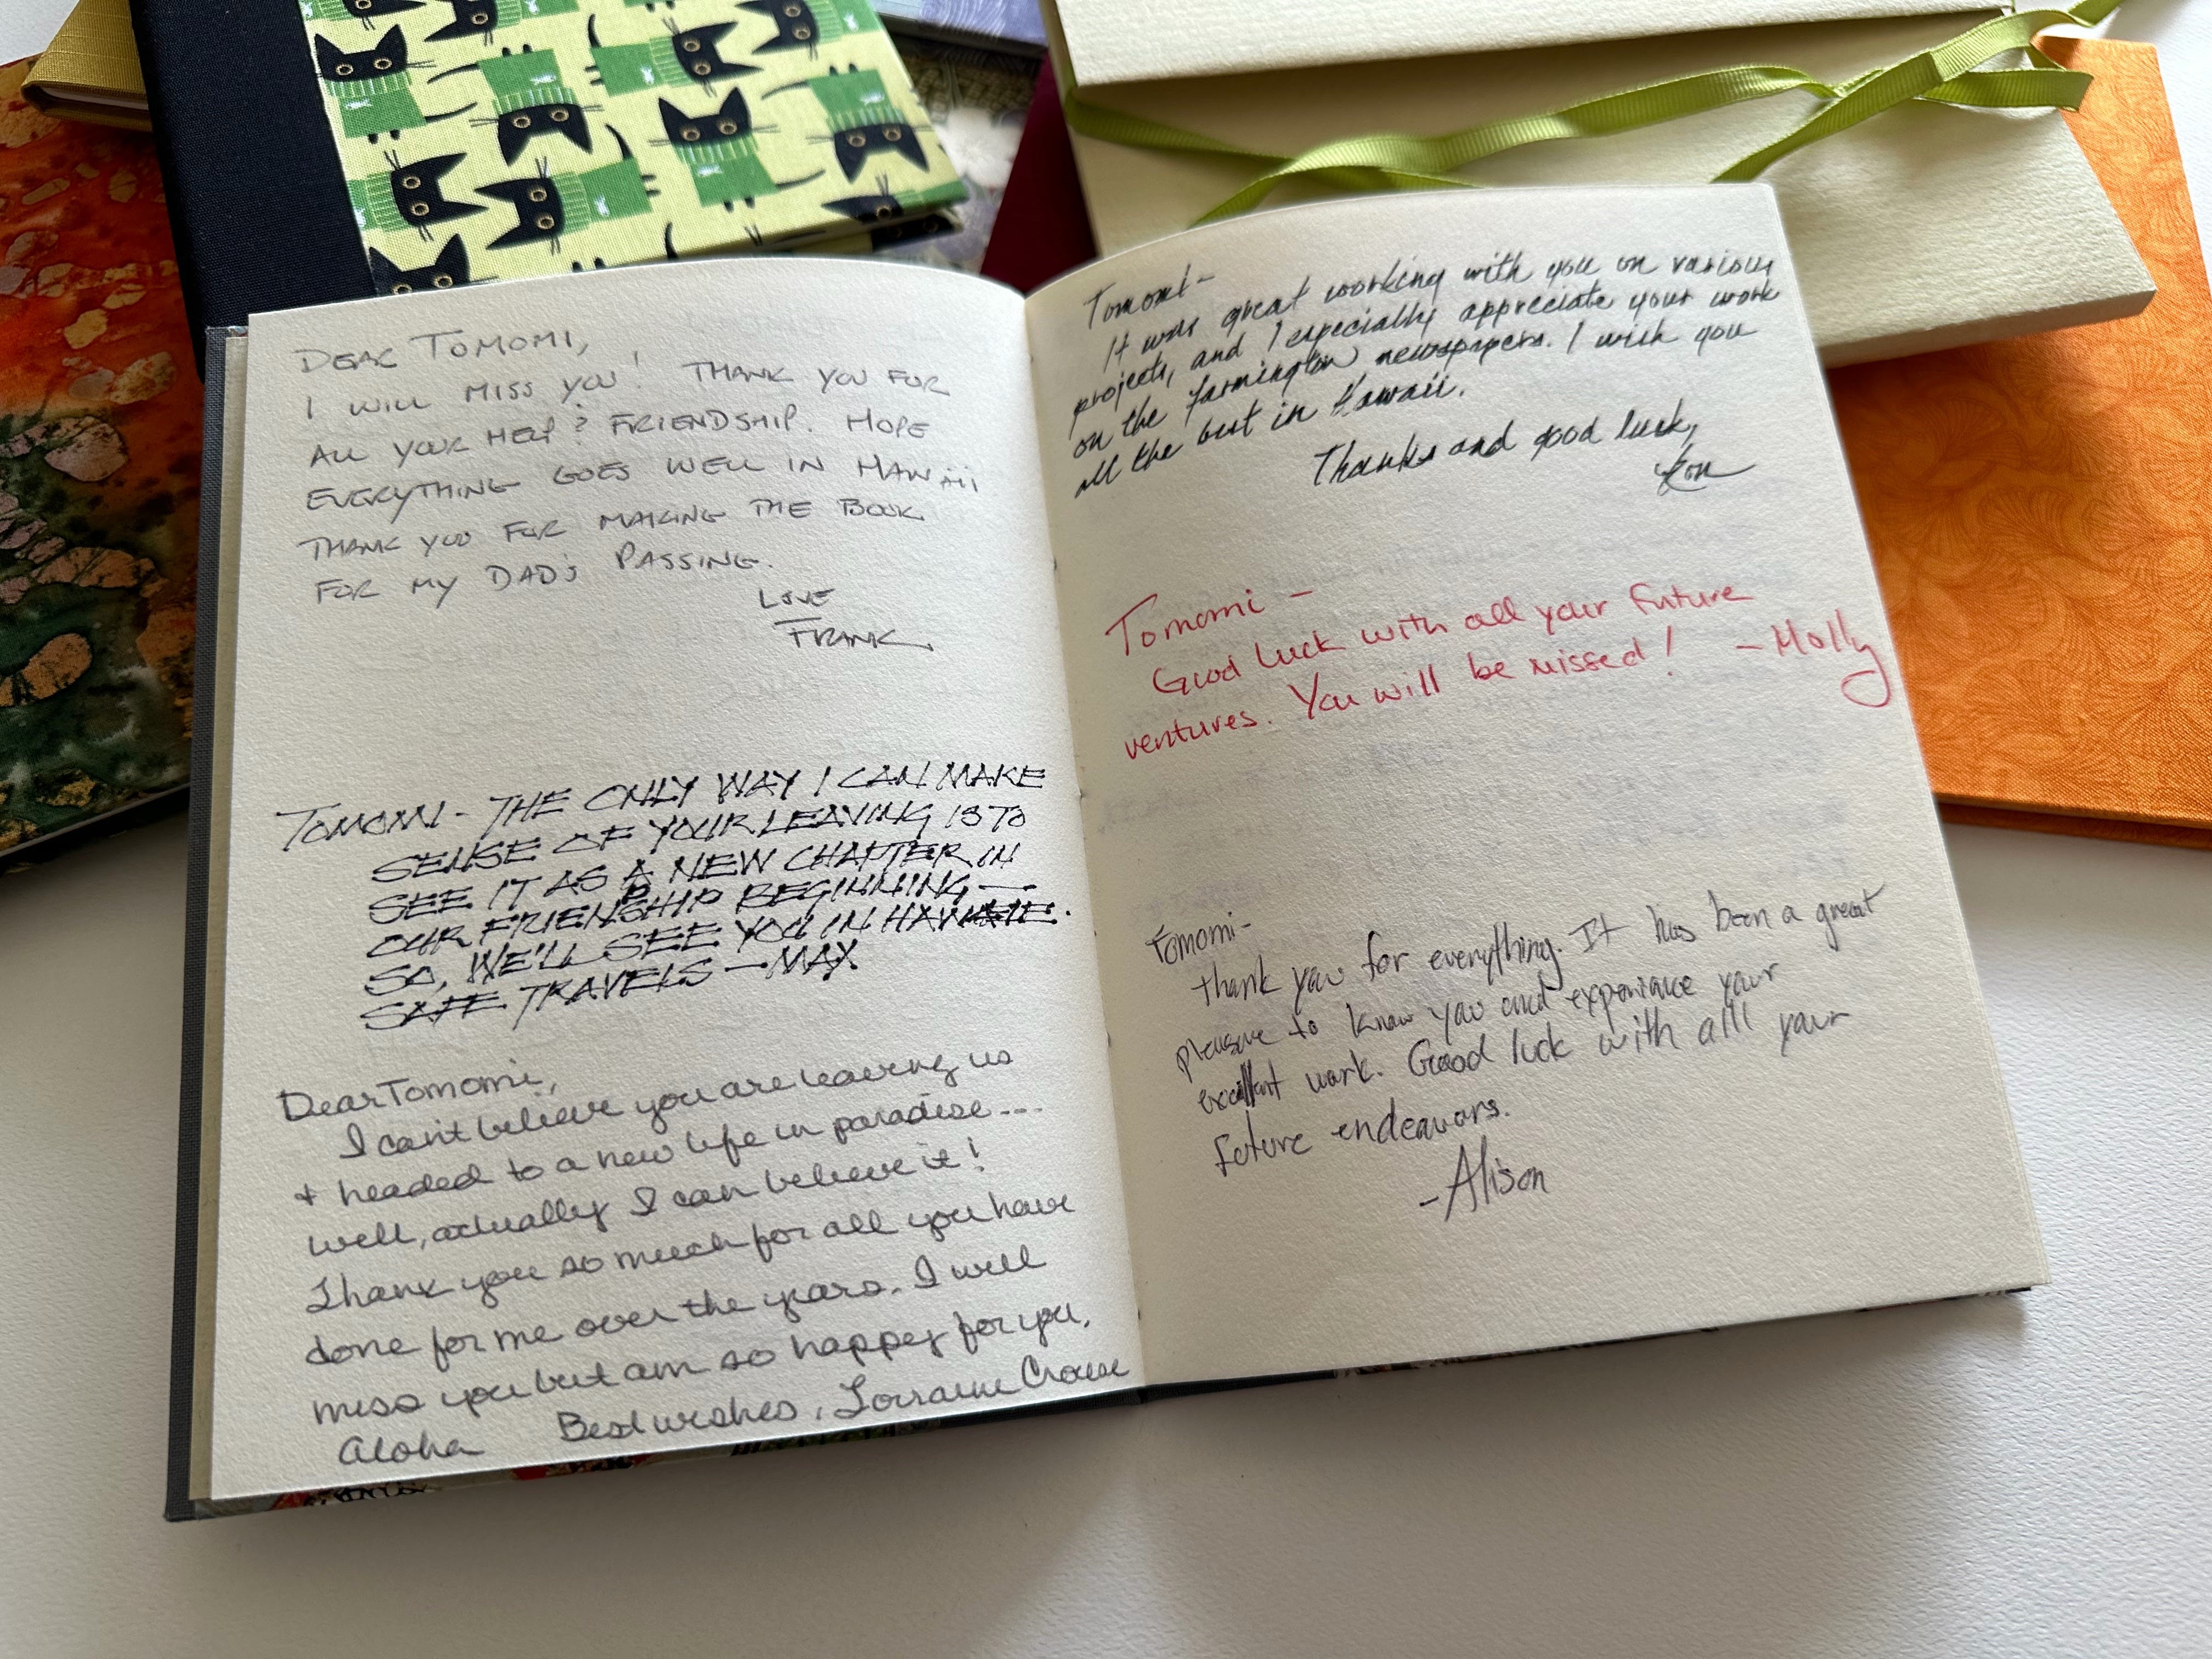 DEAR TOMOMI,
I WILL MISS YOU! THANK YOU FOR
ALL YOUR HELP & FRIENDSHIP. HOPE
EVERYTHING GOES WELL IN HAWAii
THANK YOU FOR MAKING THE BOOK
FOR MY DAD'S PASSING.
LOVE
FRANK
TOMOMI - THE ONLY WAY I CAN MAKE
SENSE OF YOUR LEAVING IS TO
SEE IT AS A NEW CHAPTER IN
OUR FRIENDSHIP BEGINNING —
SO, WE'LL SEE YOU IN HAWAII.
SAFE TRAVELS — MAX
Dear Tomomi,
I can't believe you are leaving us
+ headed to a new life in paradise...
well, actually I can believe it!
Thank you so much for all you have
done for me over the years. I will
miss you but am so happy for you.
Aloha Best wishes, Lorraine
Tomomi-
It was great working with you on various
projects, and I especially appreciate your work
on the Farmington newspapers. I wish you
all the best in Hawaii.
Thanks and good luck,
Tomomi -
Good luck with all your future
ventures. You will be missed! - Molly
Tomomi-
thank you for everything. It has been a great
pleasure to know you and experience your
excellent work. Good luck with alll your
future endeavors.
-Alison